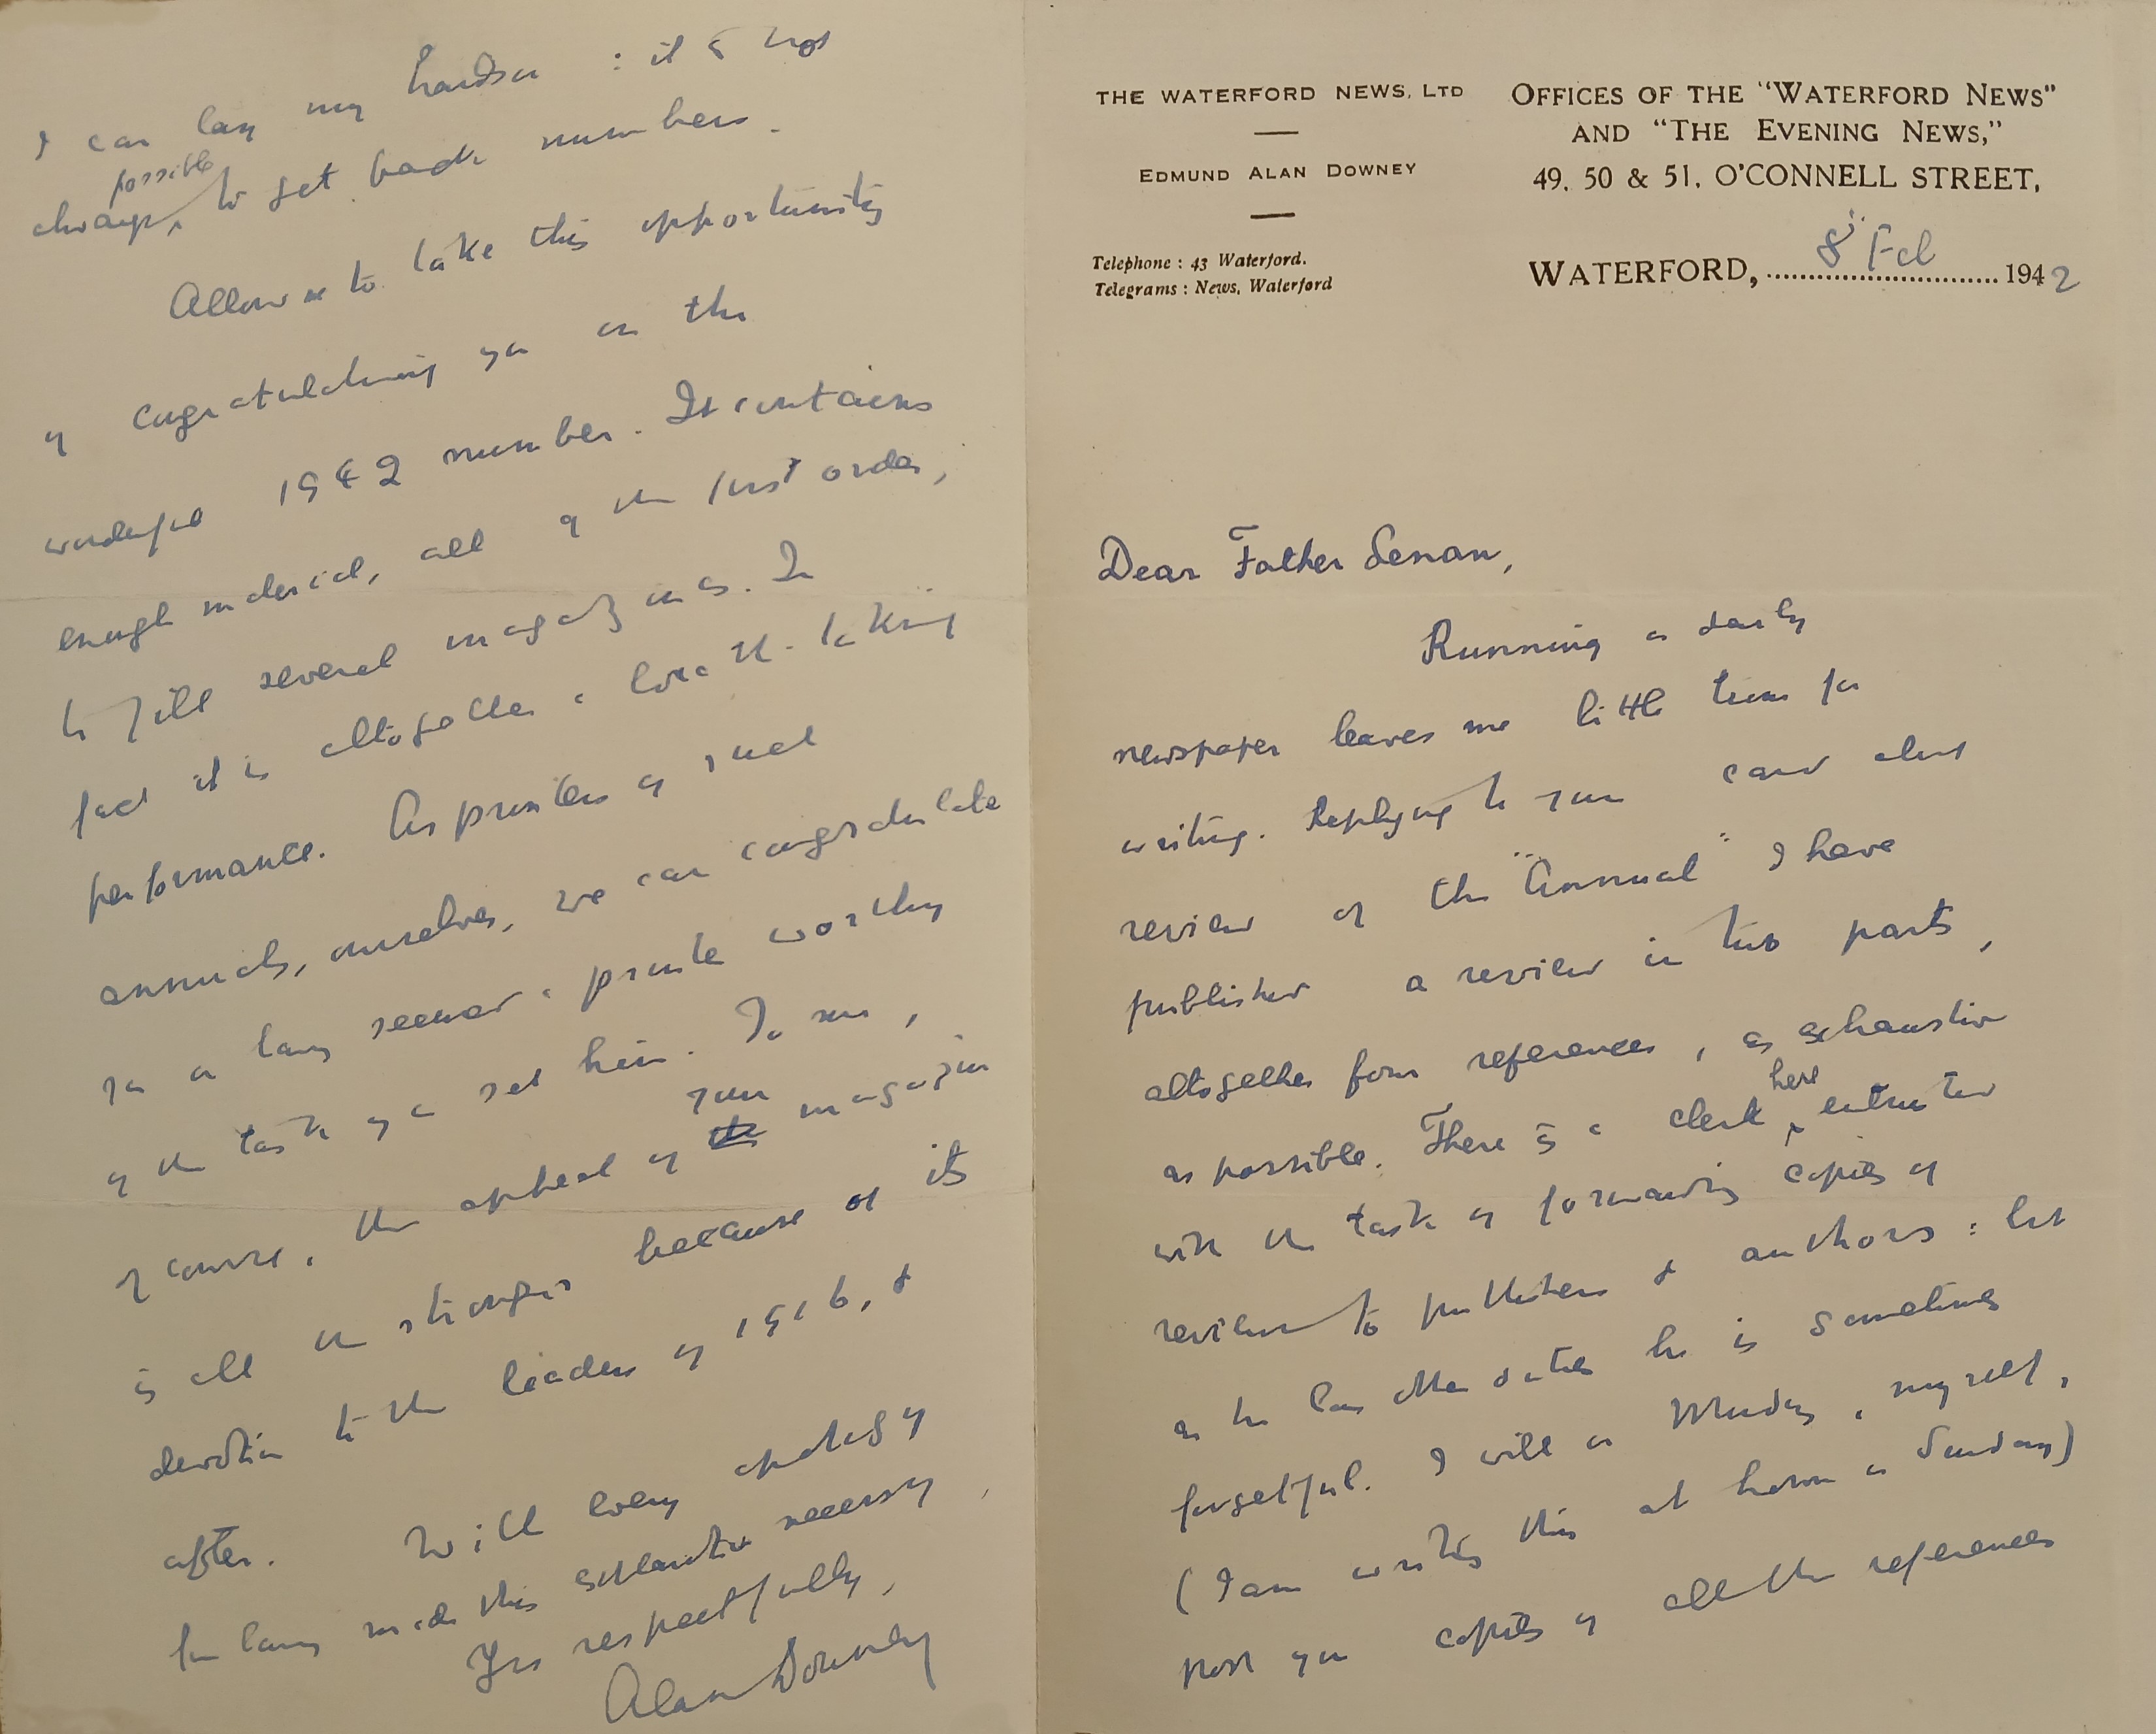 THE WATERFORD NEWS, LTD
EDMUND ALAN DOWNEY
Telephone : 43 Waterford.
Telegrams : News, Waterford
OFFICES OF THE "WATERFORD NEWS"
AND "THE EVENING NEWS,"
49, 50 & 51, O'CONNELL STREET,
WATERFORD, 8th Feb 1942
Dear Father Senan,
Running a daily
newspaper leaves me little time for
writing. Replying to your card about
review of the "Annual" I have
published a review in two parts,
altogether four references, as exhaustive
as possible. There is a clerk here entrusted
with the task of forwarding copies of
reviews to publishers & authors : but
as he has other duties he is sometimes
forgetful. I will on Monday, myself,
(I am writing this at home on Sunday)
post you copies of all the references
I can lay my hands on : it is not
always possible to get back numbers.
Allow me to take this opportunity
of congratulating you on the
wonderful 1942 number. It contains
enough material, all of the first order,
to fill several magazines. In
fact it is altogether a breath-taking
performance. As printers of such
annuals, ourselves, we can congratulate
you on having secured a printer worthy
of the task you set him. To me,
of course, the appeal of your magazine
is all the stronger because of its
devotion to the leaders of 1916, &
after. With every apology
for having made this explanation necessary,
Yrs respectfully,
Alan Downey